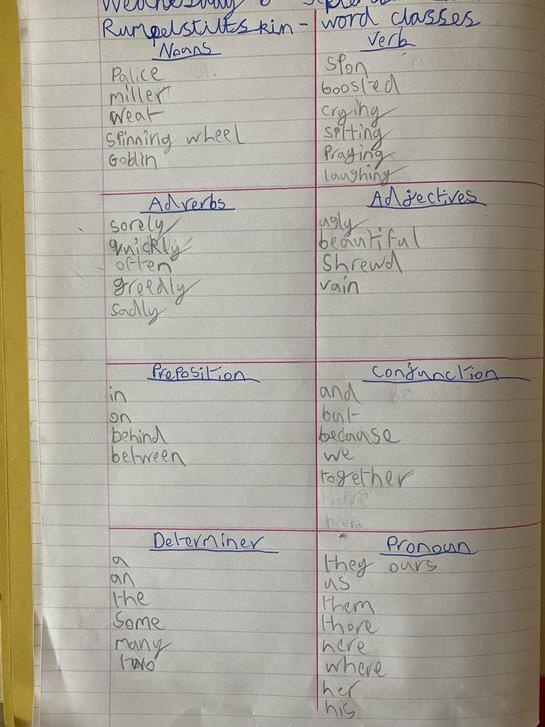 Rumpelstilts kin - word classes
Nouns
Palice
miller
weat
spinning wheel
Goblin
Verb
spon
boosted
crying
sitting
Praying
laughing
Adverbs
sorely
quickly
often
greedly
sadly
Adjectives
ugly
beautiful
Shrewd
vain
Preposition
in
on
behind
between
Conjunction
and
but
because
we
together
Determiner
a
an
the
Some
many
two
Pronoun
they ours
us
them
thore
here
where
her
his